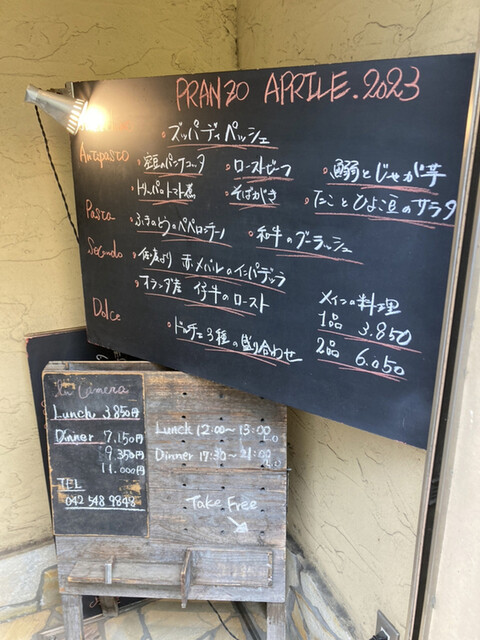 PRANZO APRILE.2023
・ズッパ ディ ペッシェ
Antipasto
・空豆のパンナコッタ ・ローストビーフ ・鰯とじゃが芋
・トリッパのトマト煮 ・そばがき ・たことひよこ豆のサラダ
Pasta ・ふきのとうのペペロンチーノ ・和牛のグーラッシュ
Secondo ・佐渡より 赤メバルのインパデッラ
・オランダ産 仔牛のロースト
Dolce ・ドルチェ3種の盛り合わせ
メインの料理
1品 3.850
2品 6.050
La Camera
Lunch 3.850円
Dinner 7,150円
9,350円
11,000円
TEL
042 548 9848
Lunch 12:00〜13:00
L.O
Dinner 17:30〜21:00
L.O
Take Free